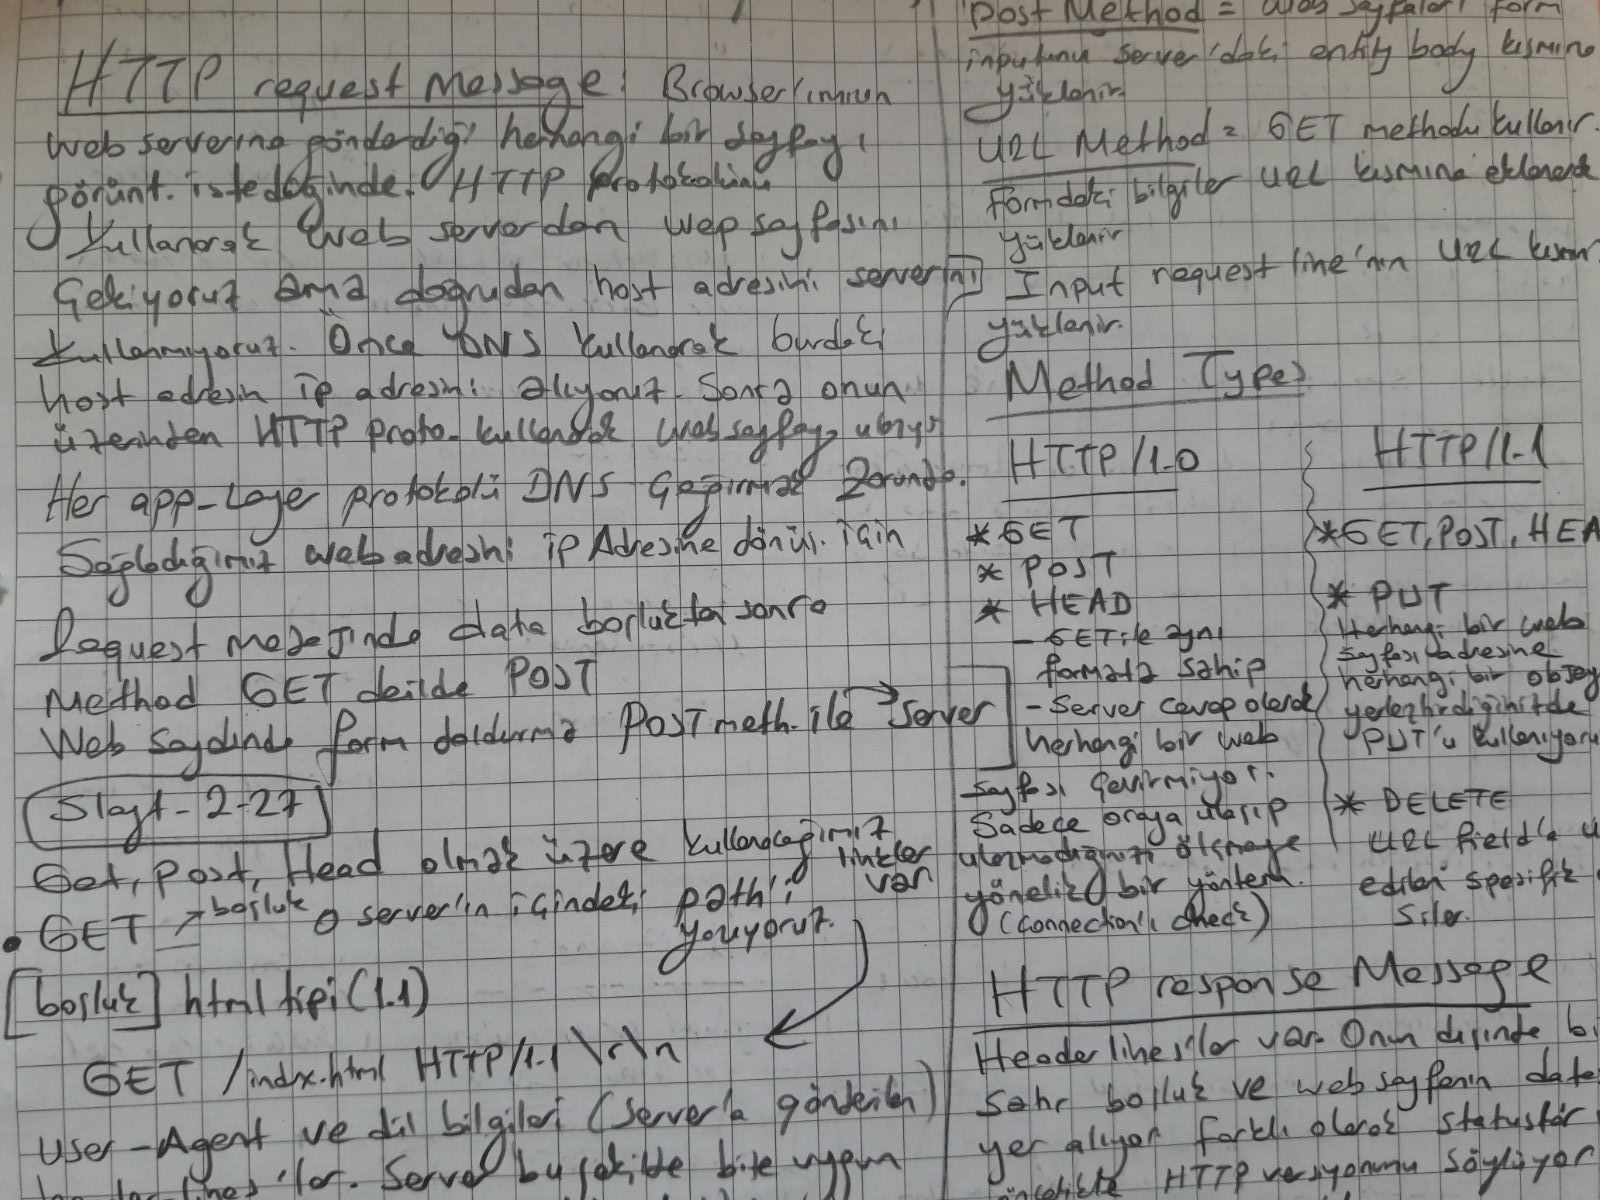 HTTP request Message: Browser'ımızın
web serverına gönderdiği herhangi bir sayfayı
görünt. istedeğinde. HTTP protokolünü
kullanarak web serverdan wep sayfasını
Çekiyoruz ama doğrudan host adresini serverın
kullanmıyoruz. Önce DNS kullanarak burdaki
host adresin ip adresini alıyoruz. Sonra onun
üzerinden HTTP proto. kullanarak web sayfayı
Her app-layer protokolü DNS Çağırmak Zorunda.
Sağladığımız web adresini ip Adresine dönüş. için
Request mesajında data boşluktan sonra
Method GET deilde POST
Web Saydında form doldurma POST meth. ile → server
Slayt - 2-27
Get, Post, Head olmak üzere kullanacağımız linkler var
• GET → boşluk o server'ın içindeki path'i yazıyoruz.
[boşluk] html tipi (1.1)
GET /index.html HTTP/1.1 \r\n
User-Agent ve dil bilgileri (server'a gönderilen)
lines'lar. Server bu şekilde bize uygun
Post Method = Web sayfaları form
inputunu server'daki entity body kısmına
yüklenir.
URL Method = GET methodu kullanır.
Formdaki bilgiler URL kısmına eklenerek
yüklenir
Input request line'nın URL kısmı
yüklenir.
Method Types
HTTP/1.0
* GET
* POST
* HEAD
- GET ile aynı
formata sahip
- Server cevap olarak
herhangi bir web
sayfası Çevirmiyor.
Sadece oraya ulaşıp
ulaşmadığımızı ölçmeye
yönelik bir yöntem.
(Connection'ı check)
HTTP/1.1
* GET, POST, HEA
* PUT
Herhangi bir web
sayfası adresine
herhangi bir objey
yerleştirdiğinizde
PUT'u kullanıyoru
* DELETE
URL field'a
edilen spesifik
Siler.
HTTP response Message
Header lines'lar var. Onun dışında bi
Satır boşluk ve web sayfanın data
yer alıyor farklı olarak status'tür
öncelikle HTTP versiyonunu söylüyor